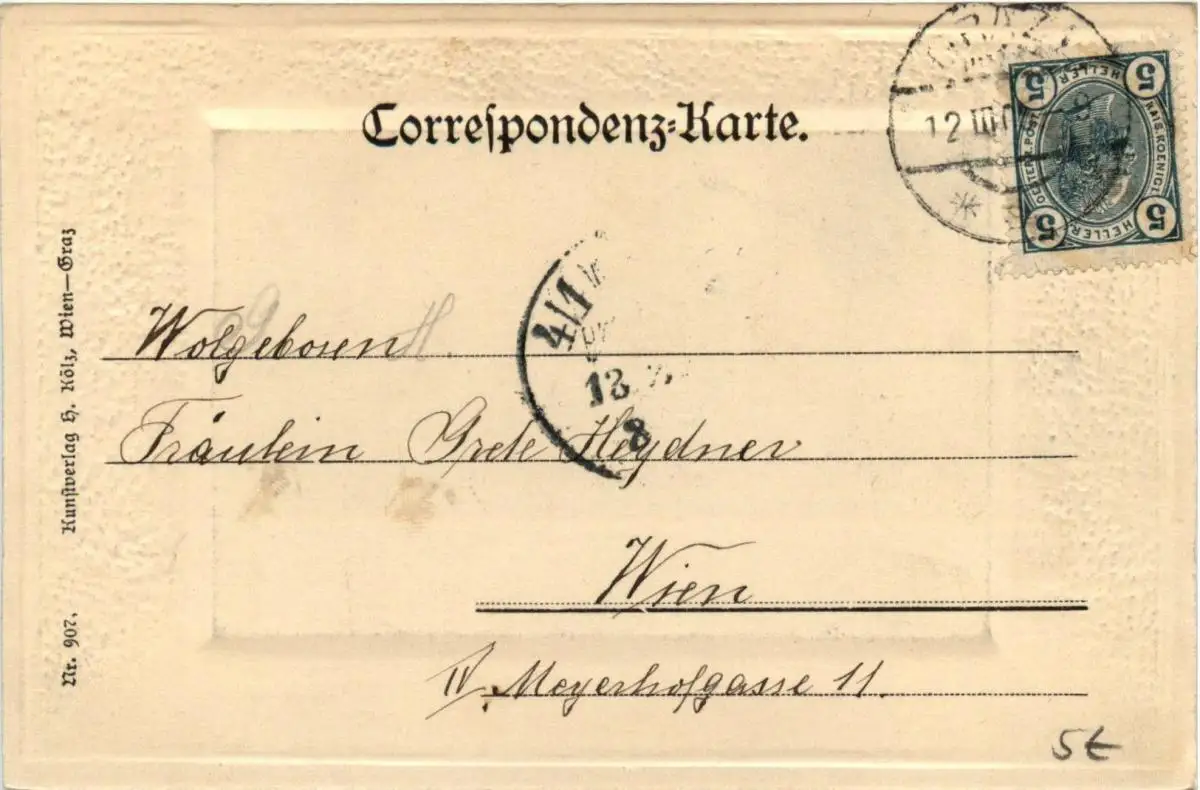 Correspondenz-Karte.
12 III
5 HELLER 5
OESTERR. POST
KAIS. KOENIGL.
5 HELLER 5
4/1
13
8
Wolgeboren
Fräulein Grete Heydner
Wien
IV. Meyerhofgasse 11.
Nr. 907. Kunstverlag H. Kölz, Wien—Graz
5€